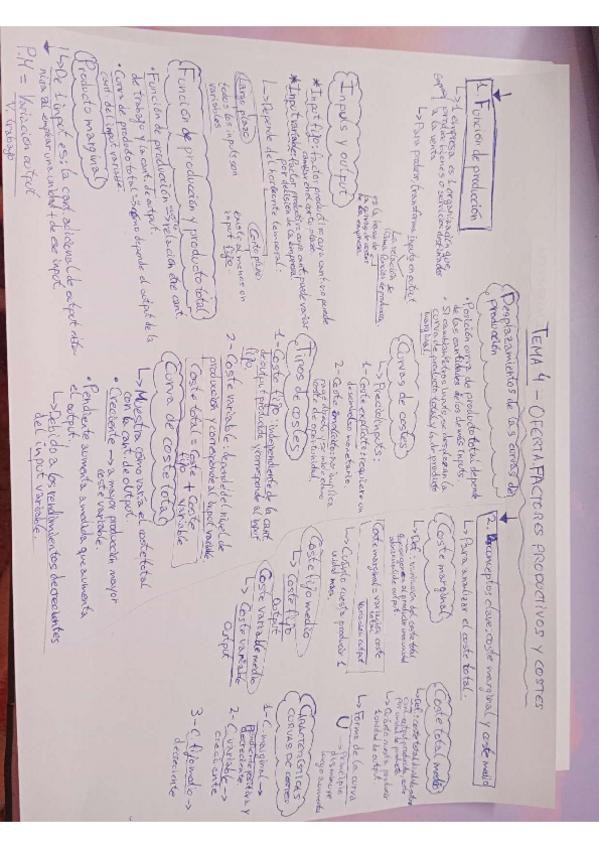 TEMA 4 – OFERTA, FACTORES PRODUCTIVOS Y COSTES
1. Función de producción
↳ 1 empresa es 1 organización que
produce bienes o servicios destinados
a la venta
↳ Para poder transforma inputs en output
La relación se
llama función de producción
es la base de
de la empresa.
Inputs y output
* Input fijo: factor productivo cuya cant. no puede
cambiar en el corto plazo.
* Input variable: factor productivo cuya cant puede variar
por decisión de la empresa.
↳ Depende del horizonte temporal.
Largo plazo
todos los inputs son
variables
Corto plazo
existe al menos un
input fijo
Función de producción y producto total
• Función de producción → relación entre cant
de trabajo y la cant. de output.
• Curva de producto total → como depende el output de la
cant del input variable.
Producto marginal
↳ De 1 input es: la cant. adicional de output
al emplear una unidad + de ese input.
P.M = Variación output
V. trabajo
Desplazamientos de las curvas de
producción
• Posición curva de producto total depende
de las cantidades de los demás inputs
• Si cambian otros inputs, se desplazan la
curva de producto total y la de producto
marginal.
Curvas de costes
↳ Precio inputs:
1- Coste explícito: requiere un
desembolso monetario.
2- Coste implícito: no implica
coste de oportunidad.
Tipos de costes
1- Coste fijo: independiente de la cant
de output producida y corresponde al input
fijo.
2- Coste variable: depende del nivel de
producción y corresponde al input variable.
Coste total = Coste fijo + Coste variable
Curva de coste total
↳ Muestra cómo varía el coste total
con la cant. de output.
• Creciente → a mayor producción mayor
coste variable.
• Pendiente aumenta a medida que aumenta
el output.
↳ Debido a los rendimientos decrecientes
del input variable.
2. 2 conceptos clave: coste marginal y coste medio
↳ Para analizar el coste total.
Coste marginal
↳ Def.: variación del coste total
al producir una unidad
adicional de output
Coste marginal = variación coste total
Variación output
↳ Cuánto cuesta producir 1
unidad mas
Coste fijo medio
↳ Coste fijo
Output
Coste variable medio
↳ Coste variable
Output
Coste total medio
↳ Def: coste total dividido entre
cant. output producida,
↳ Cuánto cuesta producir
1 unidad de output
↳ Forma de la curva
U → Principio
disminuye
luego aumenta
CARACTERÍSTICAS
CURVAS DE COSTES
1- C. marginal →
pendiente positiva y
2- C variable →
creciente
3- C fijo medio →
decreciente